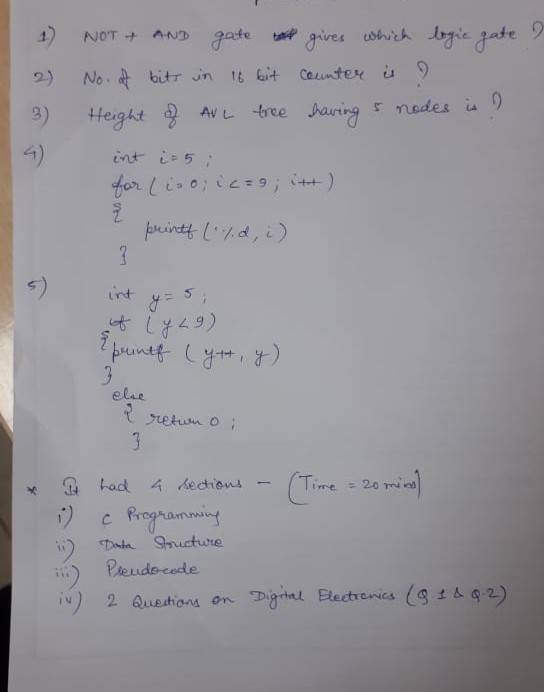 1) NOT + AND gate gives which logic gate ?
2) No. of bits in 16 bit counter is ?
3) Height of AVL tree having 5 nodes is ?
4) int i = 5 ;
for ( i = 0 ; i <= 9 ; i++ )
{
printf ( '%d, i )
}
5) int y = 5 ;
if ( y < 9 )
{ printf ( y++, y )
}
else
{ return 0 ;
}
* It had 4 sections - (Time = 20 mins)
i) C Programming
ii) Data Structure
iii) Pseudocode
iv) 2 Questions on Digital Electronics (Q 1 & Q.2)